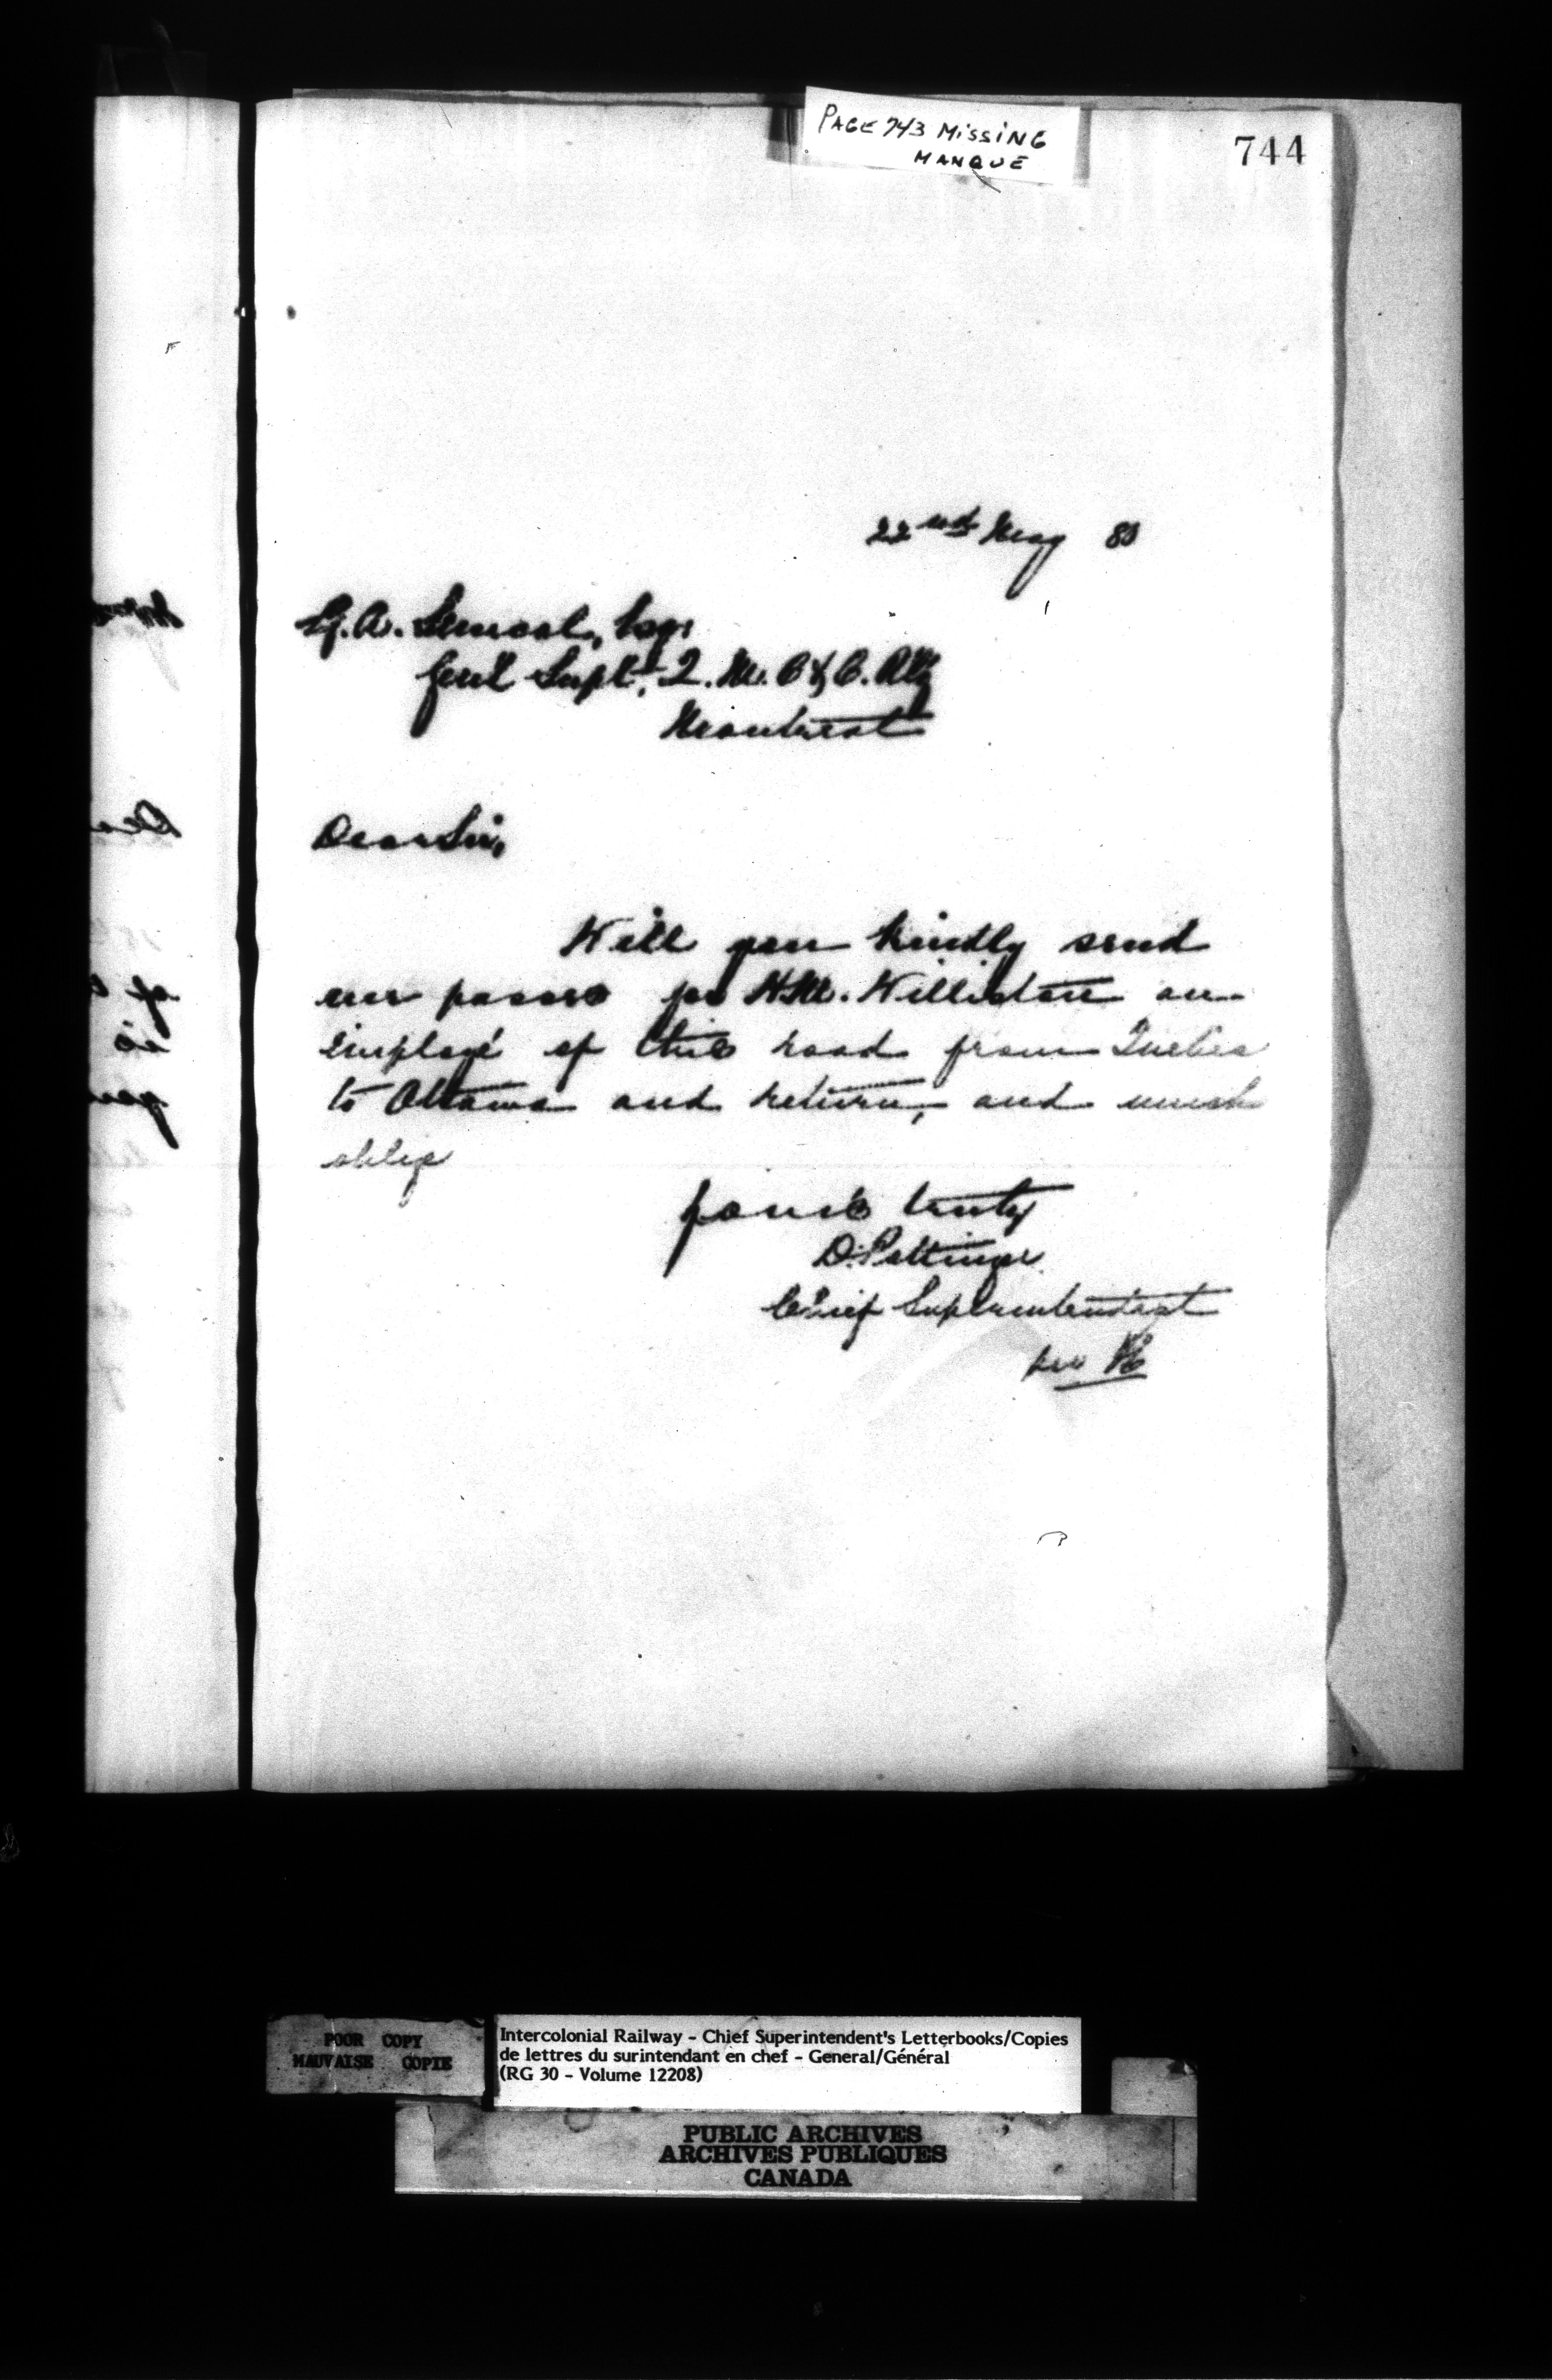 PAGE 743 MISSING
MANQUE
744
22nd May 80
A. Senecal, Esq,
Genl Supt, Q. M. O & O. Rly
Montreal
Dear Sir,
Will you kindly send
me passes for Williston an
employé of this road from Quebec
to Ottawa and return, and much
oblige
Yours truly
D. Pottinger
Chief Superintendent
per
POOR COPY
MAUVAISE COPIE
Intercolonial Railway - Chief Superintendent's Letterbooks/Copies
de lettres du surintendant en chef - General/Général
(RG 30 - Volume 12208)
PUBLIC ARCHIVES
ARCHIVES PUBLIQUES
CANADA